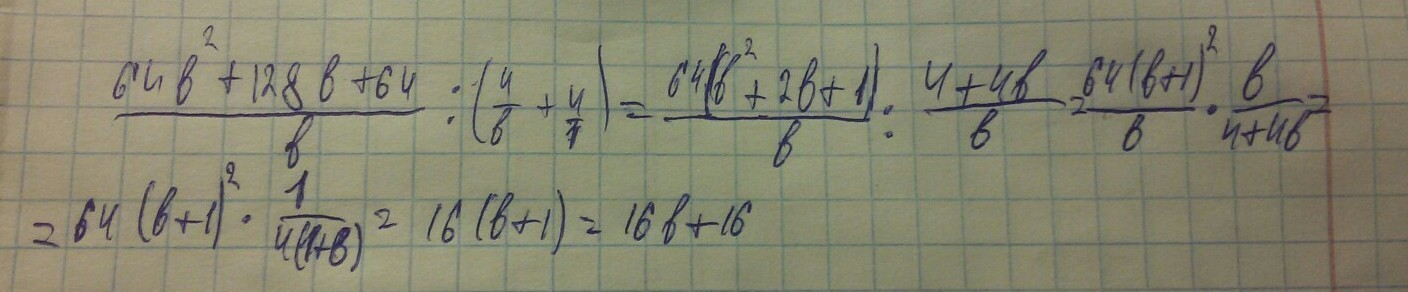 (64в² + 128в + 64)/в : (4/в + 4/1) = 64(в² + 2в + 1)/в : (4 + 4в)/в = 64(в+1)²/в · в/(4+4в) =
= 64(в+1)² · 1/(4(1+в)) = 16(в+1) = 16в+16